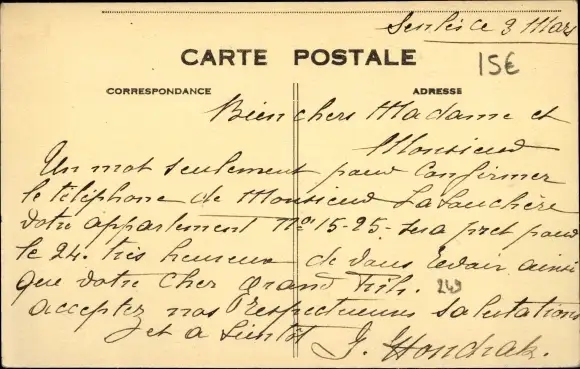 Senlis ce 3 Mars
CARTE POSTALE
15€
CORRESPONDANCE
ADRESSE
Bien chers Madame et
Monsieur
Un mot seulement pour Confirmer
le téléphone de Monsieur Latouchère
votre appartement No 15-25- sera pret pour
le 24. très heureux de vous revoir ainsi
que votre cher Grand Fils.
249
acceptez nos Respectueuses Salutations
et a bientôt
J.